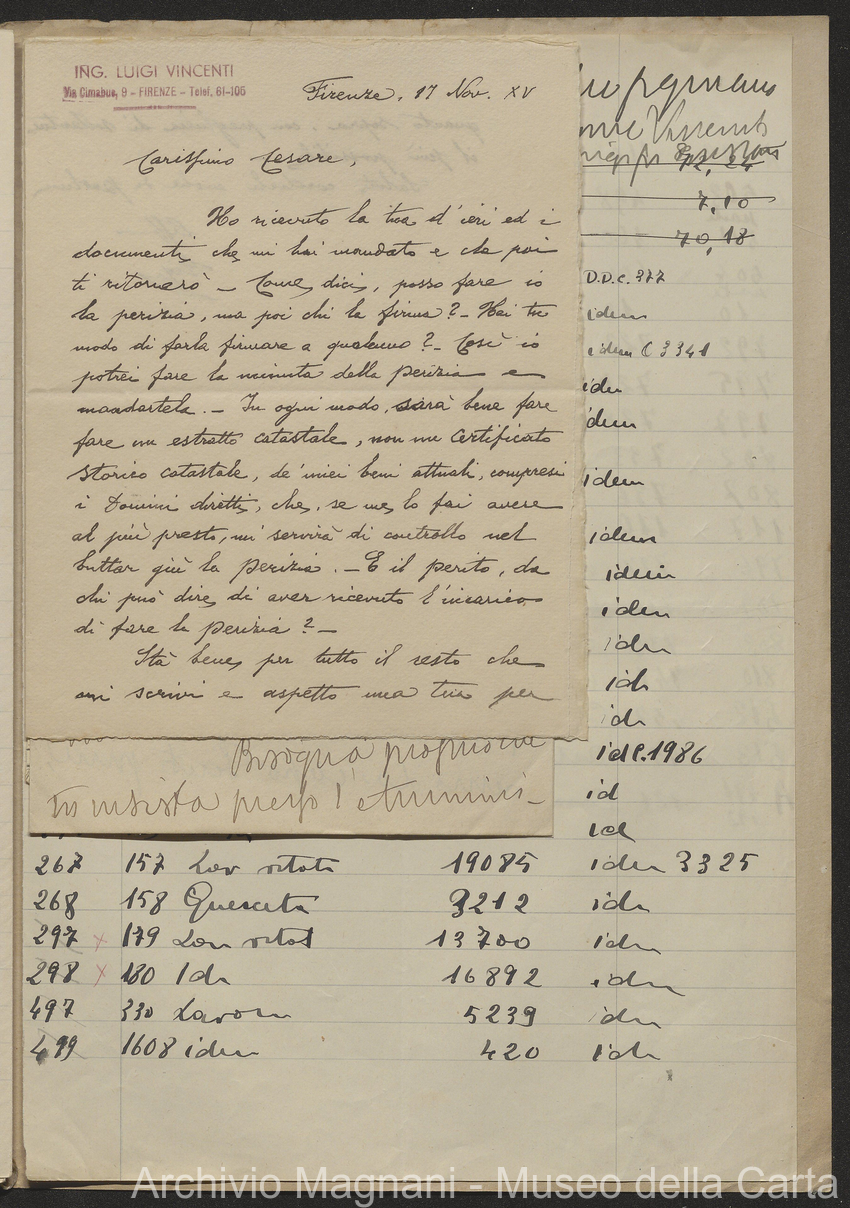 ING. LUIGI VINCENTI
Via Cimabue, 9 - FIRENZE - Telef. 61-106
Firenze, 17 Nov. XV
Carissimo Cesare,
Ho ricevuto la tua d'ieri ed i
documenti che mi hai mandato e che poi
ti ritornerò - Come dici, posso fare io
la perizia, ma poi chi la firma? - Hai tu
modo di farla firmare a qualcuno? - Così io
potrei fare la minuta della perizia e
mandartela. - In ogni modo, sarà bene fare
fare un estratto catastale, non un certificato
storico catastale, de' miei beni attuali, compresi
i Domini diretti, che, se me lo fai avere
al più presto, mi servirà di controllo nel
buttar giù la perizia. - E il perito, da
chi può dire di aver ricevuto l'incarico
di fare la perizia? -
Stà bene per tutto il resto che
mi scrivi e aspetto una tua per
Bisogna
72,24
7,10
70,18
D.D.C. 377
idem
idem C 3341
idem
idem
idem
idem
idem
idem
idem
id
id
id C. 1986
id
id
267 157 Lav vitat 19085 idem 3325
268 158 Querceta 3212 idem
297 x 179 Lav vitat 13700 idem
298 x 180 Id 16892 idem
497 330 Lavor 5239 idem
499 1608 idem 420 id
Archivio Magnani - Museo della Carta